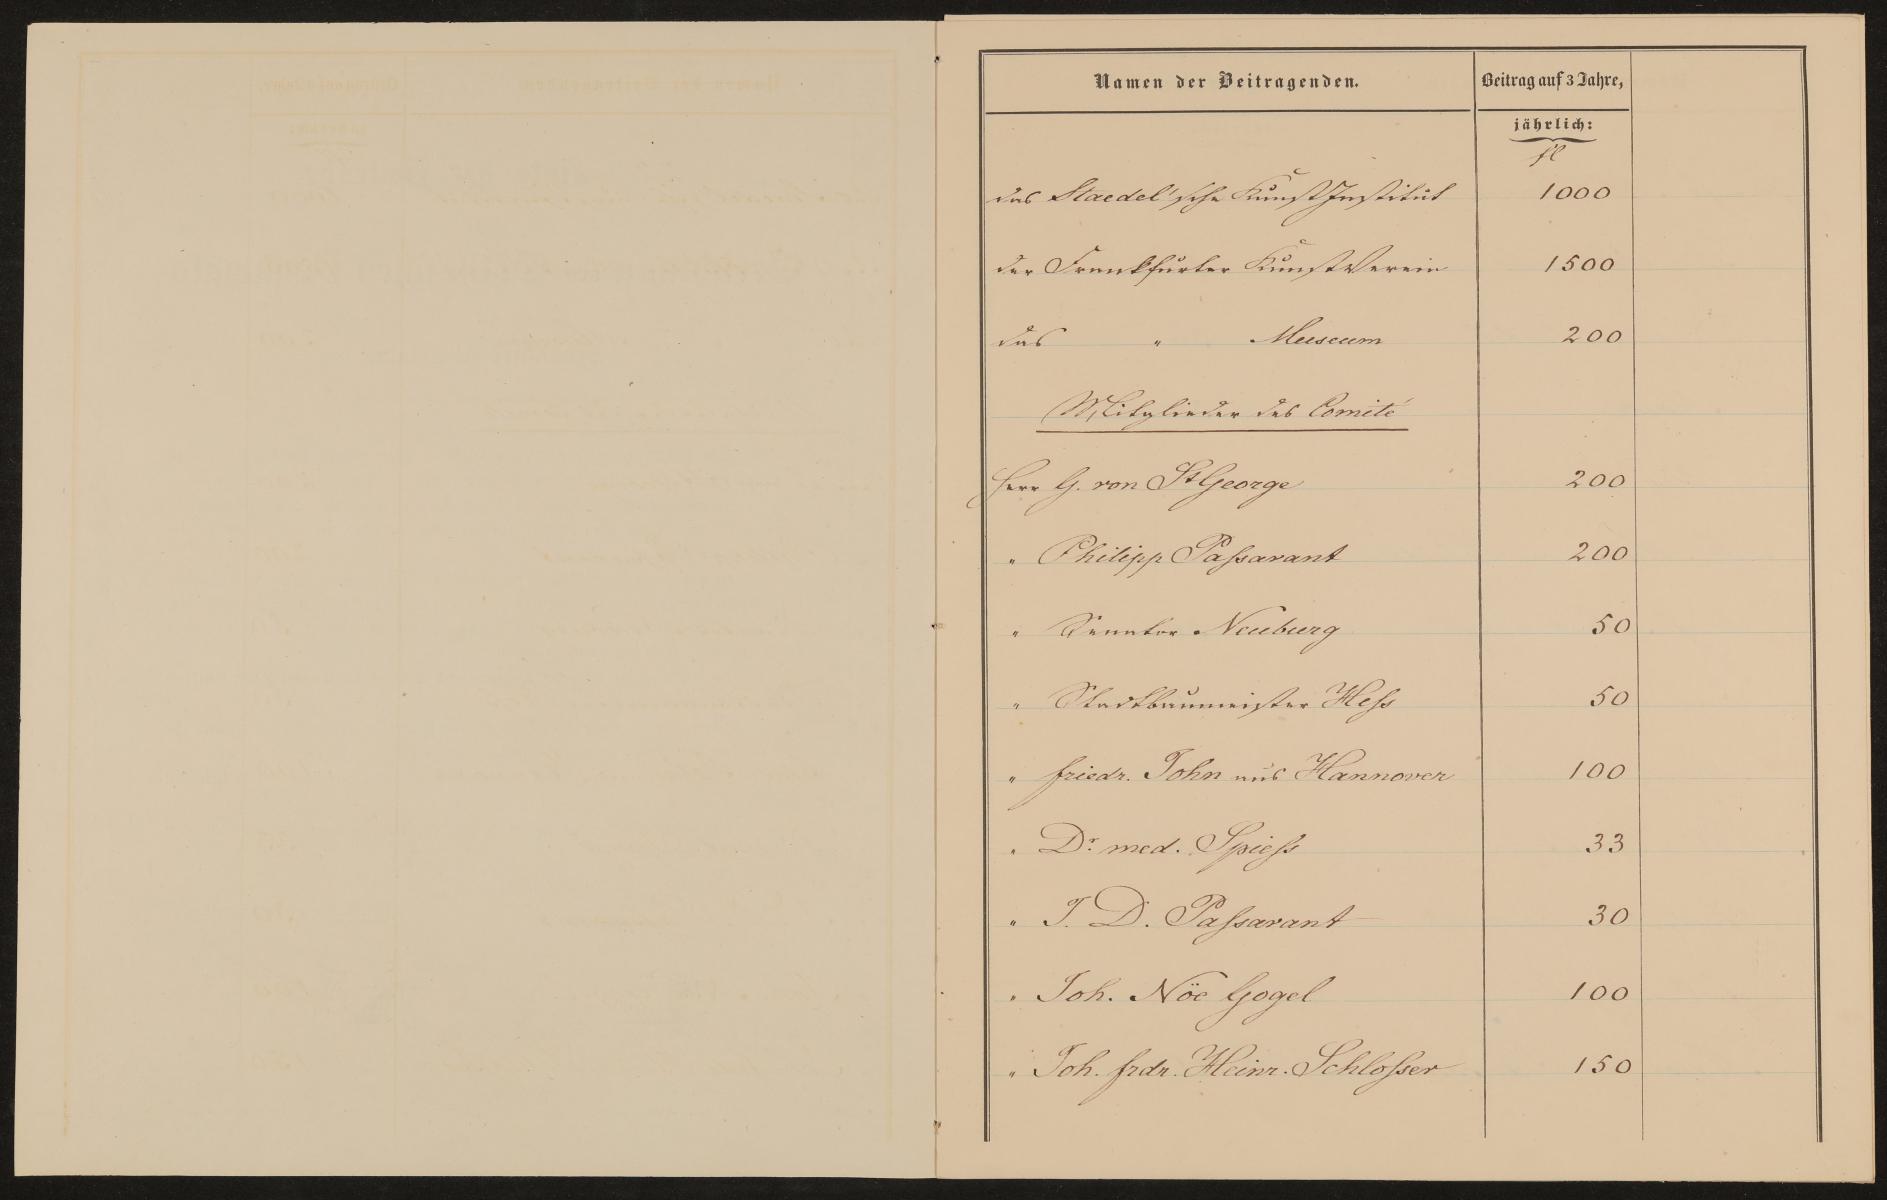 Namen der Beitragenden. Beitrag auf 3 Jahre,
jährlich:
fl
das Staedel'sche KunstInstitut 1000
der Frankfurter KunstVerein 1500
das " Museum 200
Mitglieder des Comité
Herr G. von St George 200
" Philipp Passavant 200
" Senator Neuburg 50
" Stadtbaumeister Hess 50
" Friedr. John aus Hannover 100
" Dr. med. Spiess 33
" J. D. Passavant 30
" Joh. Nöe Gogel 100
" Joh. Frdr. Heinr. Schlosser 150